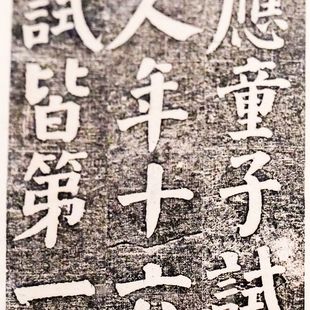 應童子試
人年十六
試皆第一